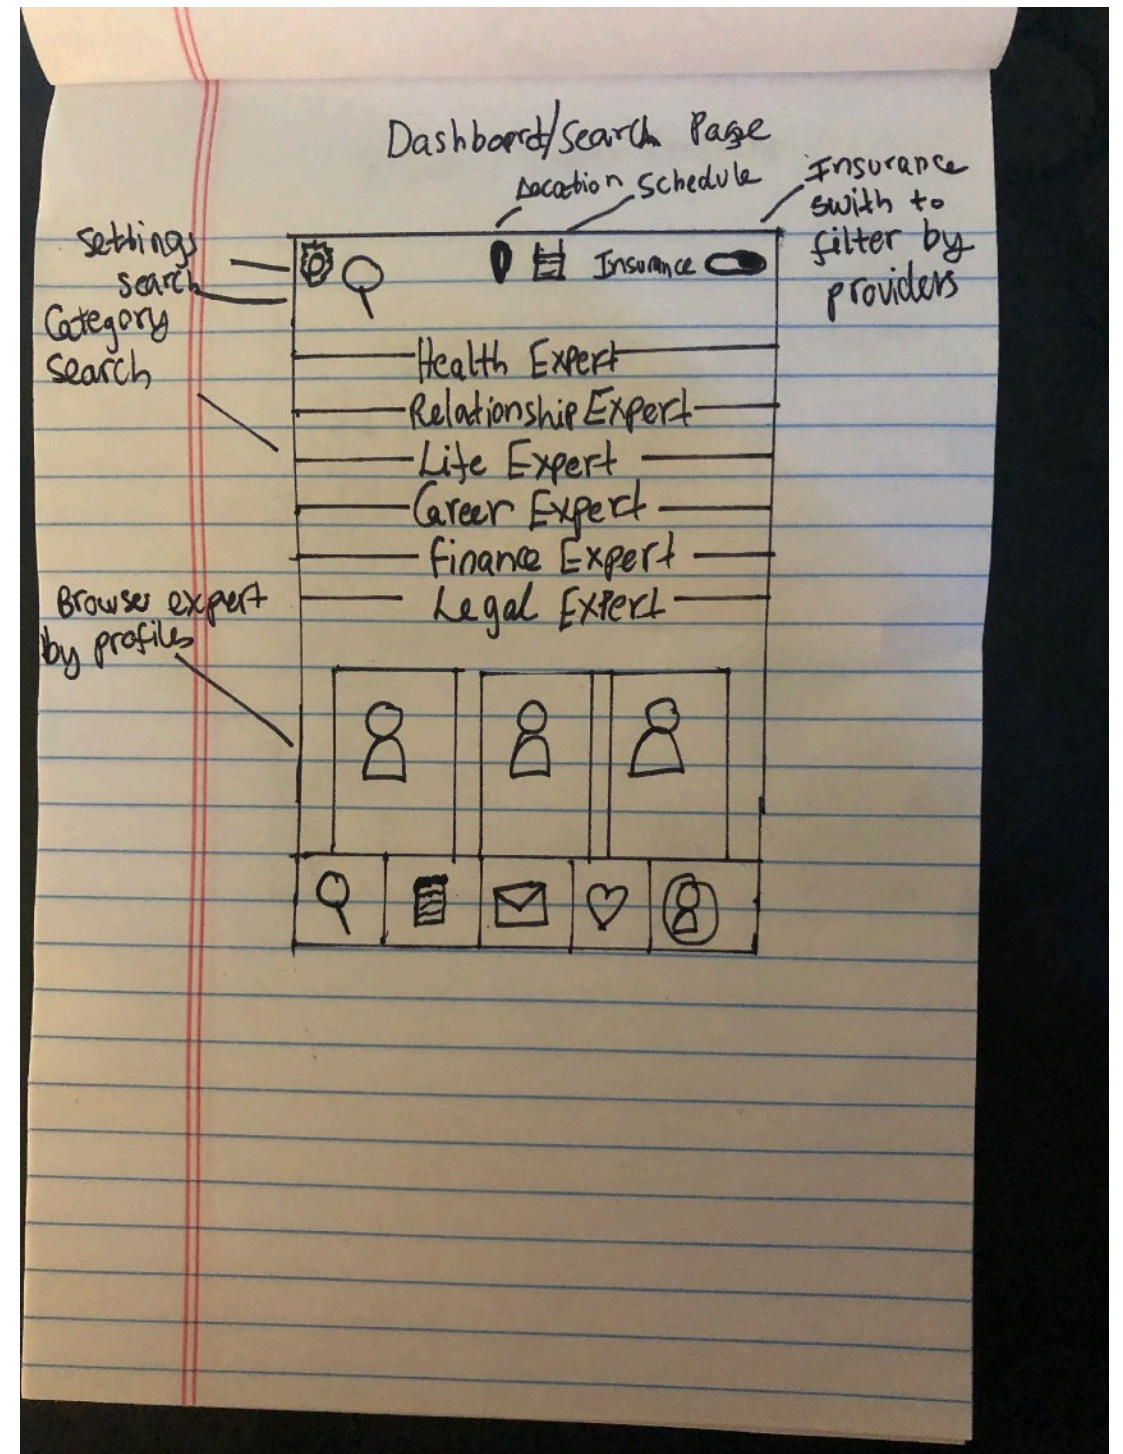 Dashboard/Search Page
Location
Schedule
Insurance
swith to
filter by
providers
Settings
Search
Category
Search
Insurance
Health Expert
Relationship Expert
Life Expert
Career Expert
Finance Expert
Legal Expert
Browser expert
by profiles